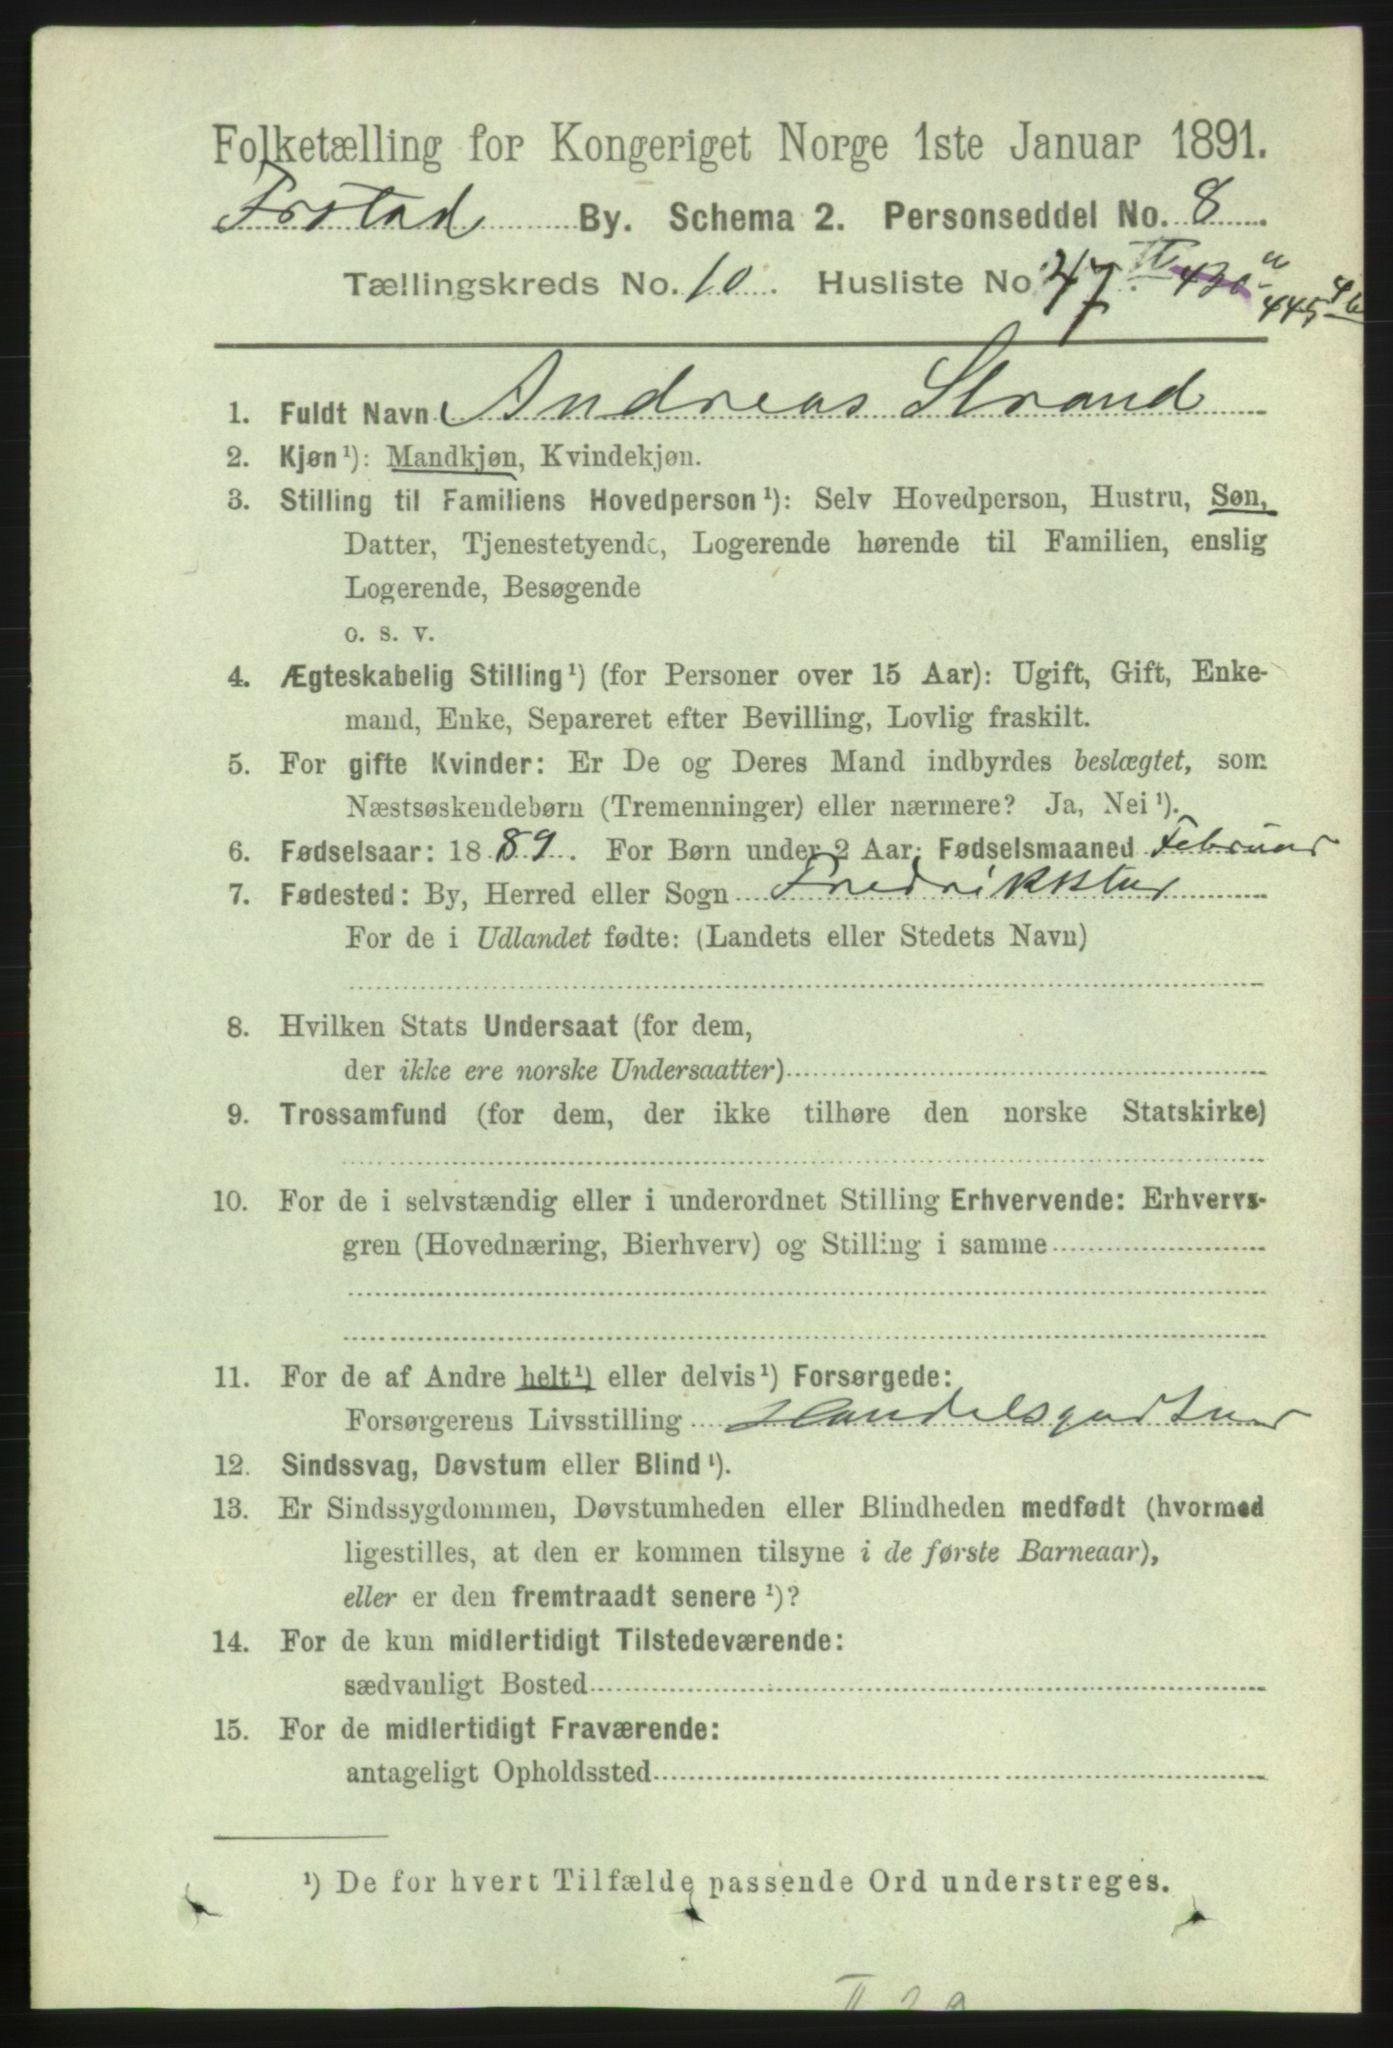 Folketælling for Kongeriget Norge 1ste Januar 1891.
Frstad By. Schema 2. Personseddel No. 8.
Tællingskreds No. 10. Husliste No 47. 445
1. Fuldt Navn Andreas Strand
2. Kjøn ¹): Mandkjøn, Kvindekjøn.
3. Stilling til Familiens Hovedperson ¹): Selv Hovedperson, Hustru, Søn,
Datter, Tjenestetyende, Logerende hørende til Familien, enslig
Logerende, Besøgende
o. s. v.
4. Ægteskabelig Stilling ¹) (for Personer over 15 Aar): Ugift, Gift, Enke-
mand, Enke, Separeret efter Bevilling, Lovlig fraskilt.
5. For gifte Kvinder: Er De og Deres Mand indbyrdes beslægtet, som
Næstsøskendebørn (Tremenninger) eller nærmere? Ja, Nei ¹).
6. Fødselsaar: 1889. For Børn under 2 Aar: Fødselsmaaned Februar
7. Fødested: By, Herred eller Sogn Fredrikstad
For de i Udlandet fødte: (Landets eller Stedets Navn)
8. Hvilken Stats Undersaat (for dem,
der ikke ere norske Undersaatter)
9. Trossamfund (for dem, der ikke tilhøre den norske Statskirke)
10. For de i selvstændig eller i underordnet Stilling Erhvervende: Erhvervs-
gren (Hovednæring, Bierhverv) og Stilling i samme
11. For de af Andre helt ¹) eller delvis ¹) Forsørgede:
Forsørgerens Livsstilling Handelsgartner
12. Sindssvag, Døvstum eller Blind ¹).
13. Er Sindssygdommen, Døvstumheden eller Blindheden medfødt (hvormed
ligestilles, at den er kommen tilsyne i de første Barneaar),
eller er den fremtraadt senere ¹)?
14. For de kun midlertidigt Tilstedeværende:
sædvanligt Bosted
15. For de midlertidigt Fraværende:
antageligt Opholdssted
¹) De for hvert Tilfælde passende Ord understreges.